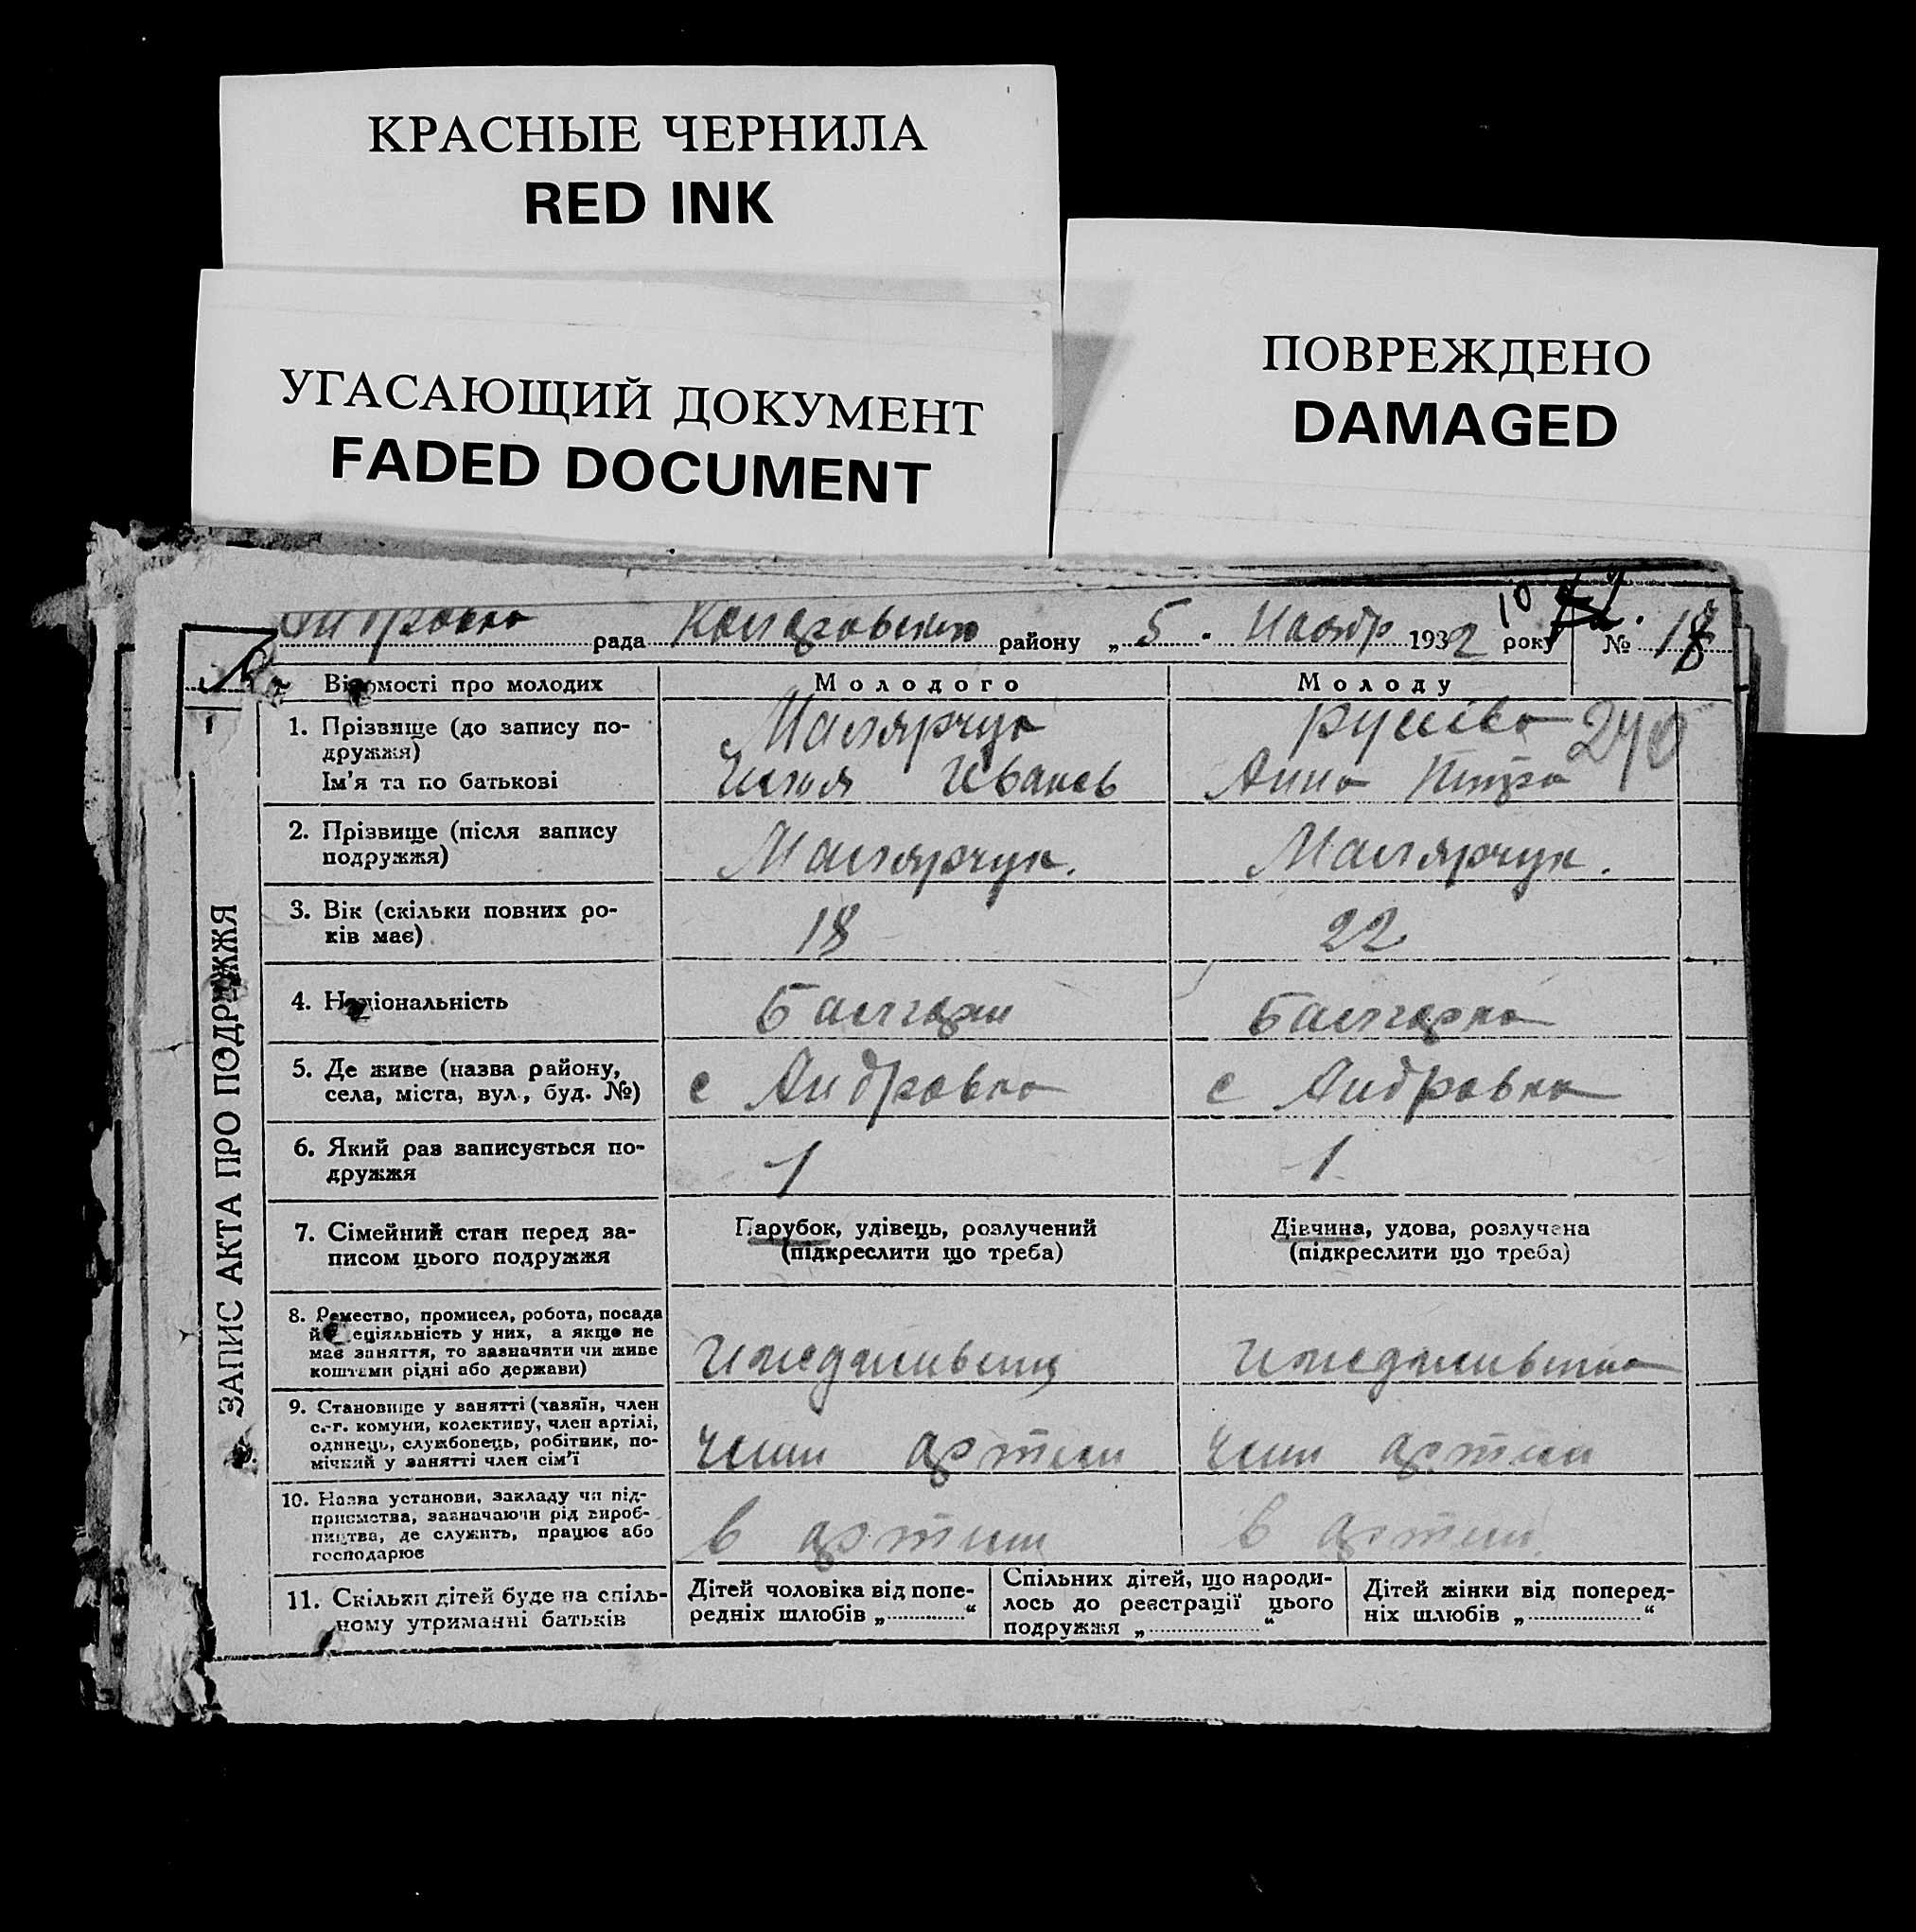 КРАСНЫЕ ЧЕРНИЛА
RED INK
УГАСАЮЩИЙ ДОКУМЕНТ
FADED DOCUMENT
ПОВРЕЖДЕНО
DAMAGED
рада района району „ 5 . Ноябр 1932 року № 18
Відомості про молодих Молодого Молоду
1. Прізвище (до запису по-
дружжя)
Малярчук 240
Ім'я та по батькові
Иванов Анна Петро
2. Прізвище (після запису
подружжя)
Малярчук. Малярчук.
3. Вік (скільки повних ро-
ків має)
18 22
4. Національність
Балгарин Балгарка
5. Де живе (назва району,
села, міста, вул., буд. №)
с Андровка с Андровка
6. Який раз записується по-
дружжя
1 1
7. Сімейний стан перед за-
писом цього подружжя
Парубок, удівець, розлучений
(підкреслити що треба)
Дівчина, удова, розлучена
(підкреслити що треба)
8. Ремество, промисел, робота, посада
й спеціяльність у них, а якщо не
має заняття, то зазначити чи живе
коштами рідні або держави)
9. Становище у занятті (хазяїн, член
с.-г. комуни, колективу, член артілі,
одинець, службовець, робітник, по-
мічний у занятті член сім'ї
член артили член артили
10. Назва установи, закладу чи під-
приємства, зазначаючи рід вироб-
ництва, де служить, працює або
господарює
в артили в артили
11. Скільки дітей буде на спіль-
ному утриманні батьків
Дітей чоловіка від попе-
редніх шлюбів „ “
Спільних дітей, що народи-
лось до реєстрації цього
подружжя „ “
Дітей жінки від поперед-
ніх шлюбів „ “
ЗАПИС АКТА ПРО ПОДРУЖЖЯ